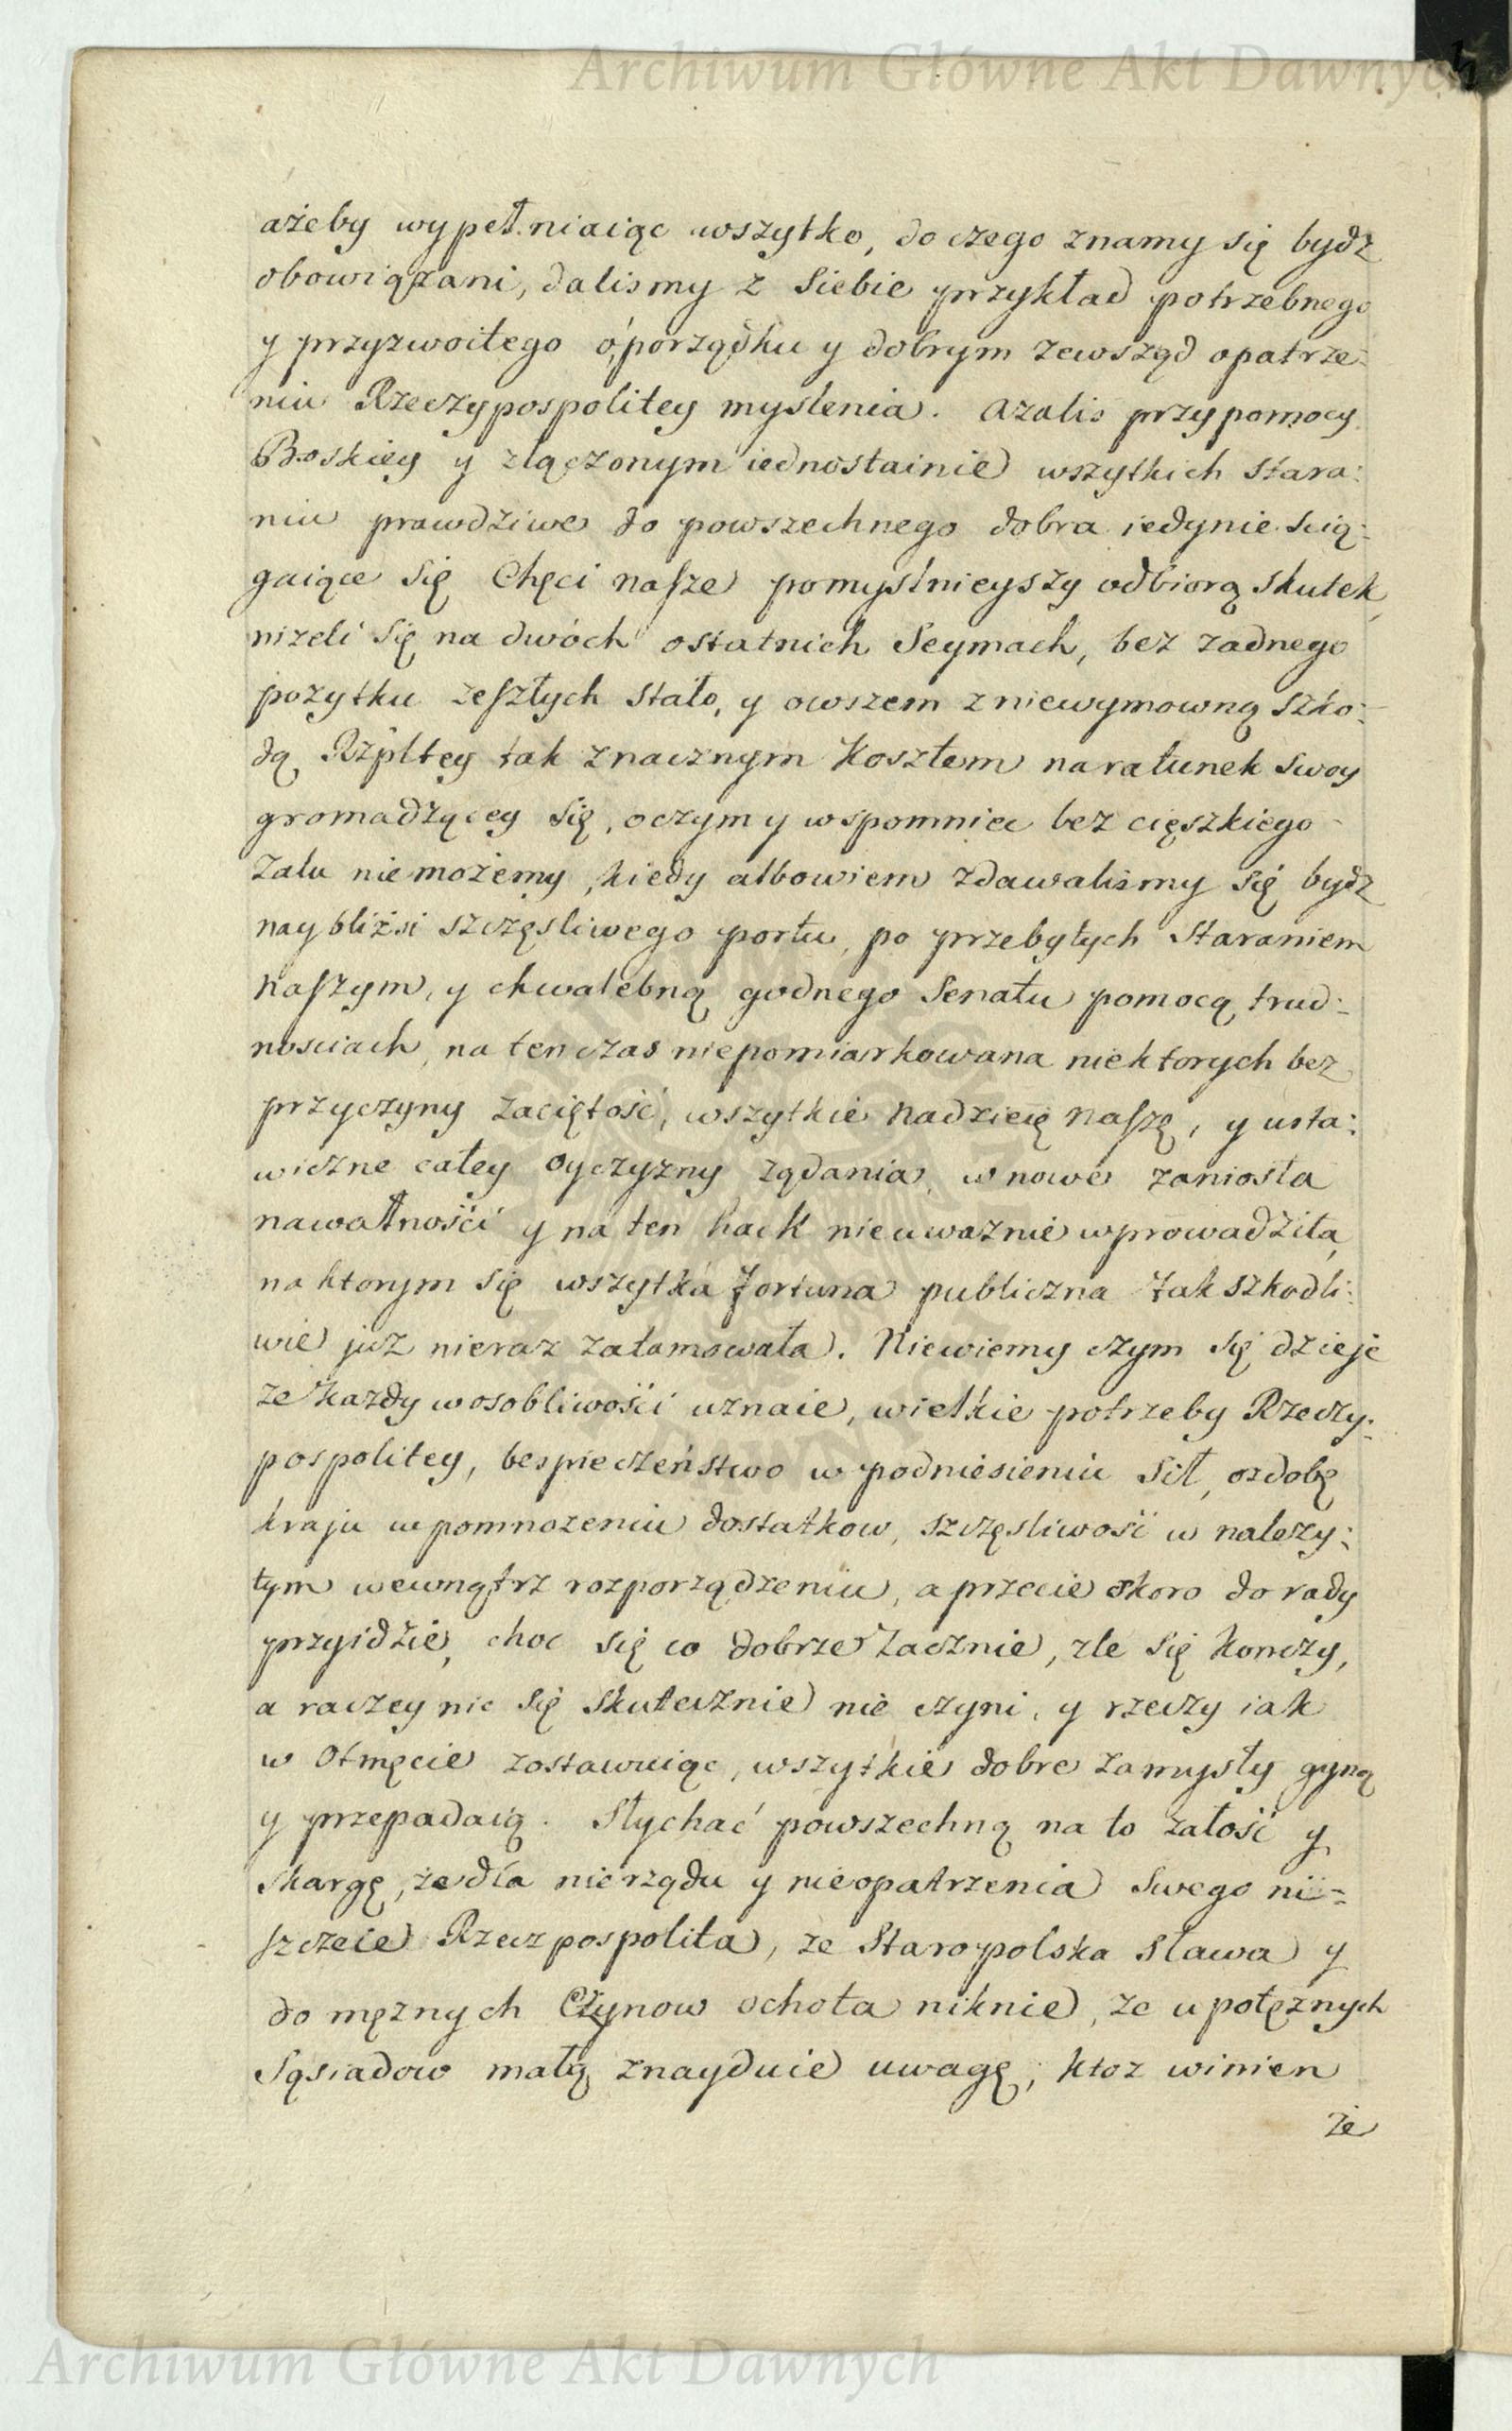 Archiwum Główne Akt Dawnych
ażeby wypełniaiąc wszytko, do czego znamy się bydz
obowiązani, dalismy z siebie przykład potrzebnego
y przyzwoitego o porządku y dobrym zewsząd opatrze:
niu Rzeczypospolitey myslenia. Azalis przy pomocy
Boskiey y złączonym iednostainie wszytkich stara:
niu prawdziwe do powszechnego dobra iedynie scią:
gaiące się Chęci nasze pomyslnieyszy odbiorą skutek,
nizeli się na dwóch ostatnich Seymach, bez zadnego
pozytku zeszłych stało, y owszem z niewymowną szko:
dą Rzpltey tak znacznym Kosztem na ratunek swoy
gromadzącey się, o czym y wspomniec bez cięszkiego
zalu niemożemy, kiedy albowiem zdawalismy się bydz
naybliżsi szczęsliwego portu, po przebytych staraniem
naszym, y chwalebną godnego Senatu pomocą trud:
nosciach, na ten czas niepomiarkowana niektorych bez
przyczyny zaciętość, wszytkie nadzieię naszę, y usta:
wiczne całey oyczyzny ządania, w nowe zaniosła
nawałności y na ten hack nieuwaznie wprowadziła,
na ktorym się wszytka fortuna publiczna tak szkodli:
wie już nieraz załamowała. Niewiemy czym się dzieje
ze Kazdy w osobliwości uznaie, wielkie potrzeby Rzeczy:
pospolitey, bespieczeństwo w podniesieniu sił, ozdobę
kraju w pomnozeniu dostatkow, szczęsliwość w nalezy:
tym wewnątrz rozporządzeniu, a przecie skoro do rady
przyidzie, choc się co dobrze zacznie, zle się konczy,
a raczey nic się skutecznie nie czyni, y rzeczy iak
w Otmęcie zostawuiąc, wszytkie dobre zamysły gyną
y przepadaią. Słychać powszechną na to załość y
skargę, że dla nierządu y nieopatrzenia swego ni=
szczeie Rzeczpospolita, ze Staropolska sława y
do męznych Czynow ochota niknie, ze u potęznych
Sąsiadow małą znayduie uwagę, ktoz winien
że
Archiwum Główne Akt Dawnych